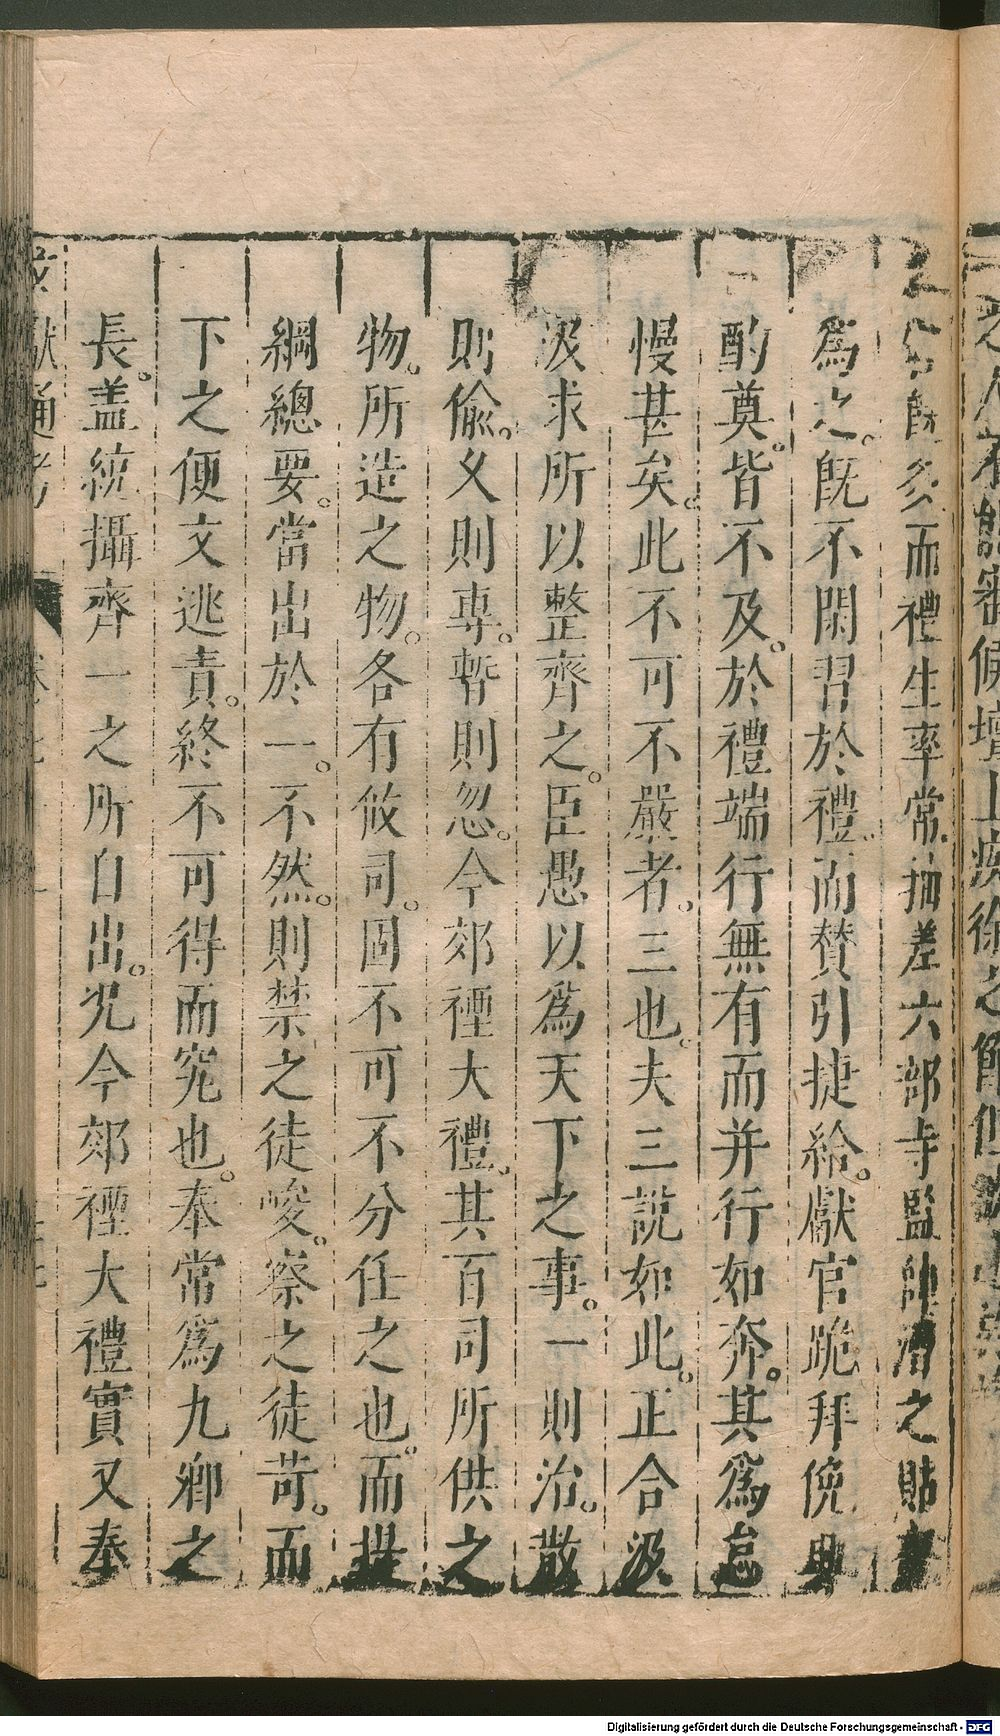 旣多而禮生率常抽差六部寺監帥漕之貼
爲之。旣不閑習於禮。而賛引捷給。獻官跪拜俛興
酌奠。皆不及。於禮端行無有而并行如奔。其爲怠
慢甚矣。此不可不嚴者。三也。夫三說如此。正合汲
汲求所以整齊之。臣愚以爲天下之事。一則治。散
則偷。乂則專。暫則忽。今郊禋大禮。其百司所供之
物。所造之物。各有攸司。固不可不分任之也。而提
綱總要。當出於一。不然。則禁之徒峻。察之徒苛。而
下之便文逃責。終不可得而究也。奉常爲九卿之
長。盖統攝齊一之所自出。况今郊禋大禮實又奉
獻通考
Digitalisierung gefördert durch die Deutsche Forschungsgemeinschaft - DFG